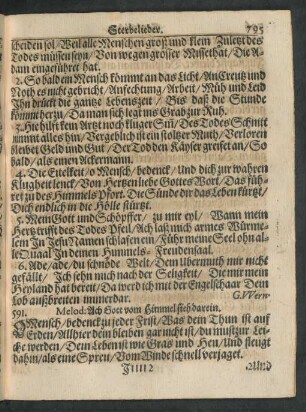 Sterbelieder. 795
scheiden sol/ Weil alle Menschen groß und klein Zuletzt des
Todes müssen seyn/ Von wegen grosser Missethat/ Die A-
dam eingeführet hat.
2. So bald ein Mensch kömmt an das Licht/ An Creutz und
Noth es nicht gebricht/ Anfechtung/ Arbeit/ Müh und Leid
Ihn drückt die gantze Lebenszeit/ Biß daß die Stunde
kömmt herzu/ Da man sich legt ins Grab zur Ruh.
3. Hie hilfft kein Artzt noch kluger Sin/ Des Todes Schnitt
nimmt alles hin/ Vergeblich ist ein stoltzer Muth/ Verloren
bleibet Geld und Gut/ Der Tod den Käyser greifet an/ So
bald/ als einen Ackermann.
4. Die Eitelkeit/ o Mensch/ bedenck/ Und dich zur wahren
Klugheit lenck/ Von Hertzen liebe Gottes Wort/ Das füh-
ret zu des Himmels Pfort. Die Sünde dir das Leben kürtzt/
Dich endlich in die Hölle stürtzt.
5. Mein Gott und Schöpffer/ zu mir eyl/ Wann mein
Hertz trifft des Todes Pfeil/ Ach laß mich armes Würme-
lein In Jesu Namen schlafen ein/ Führ meine Seel ohn al-
le Quaal In deinen Himmels-Freudensaal.
6. Ade/ ade/ du schnöde Welt/ Dein Ubermuth mir nicht
gefällt/ Ich sehn mich nach der Seligkeit/ Die mir mein
Heyland hat bereit/ Da werd ich mit der Engelschaar Dem
Lob außbreiten immerdar. G. Wern-
591. Melod: Ach Gott vom Himmel sieh darein.
O Mensch/ bedenck zu jeder Frist/ Was dein Thun ist auf
Erden/ Allhier dein bleiben gar nicht ist/ du must zur Lei-
che werden/ Dein Leben ist wie Gras und Heu/ Und fleugt
dahin/ als eine Spreu/ Vom Winde schnell verjaget.
Jiiii 2 2. Und